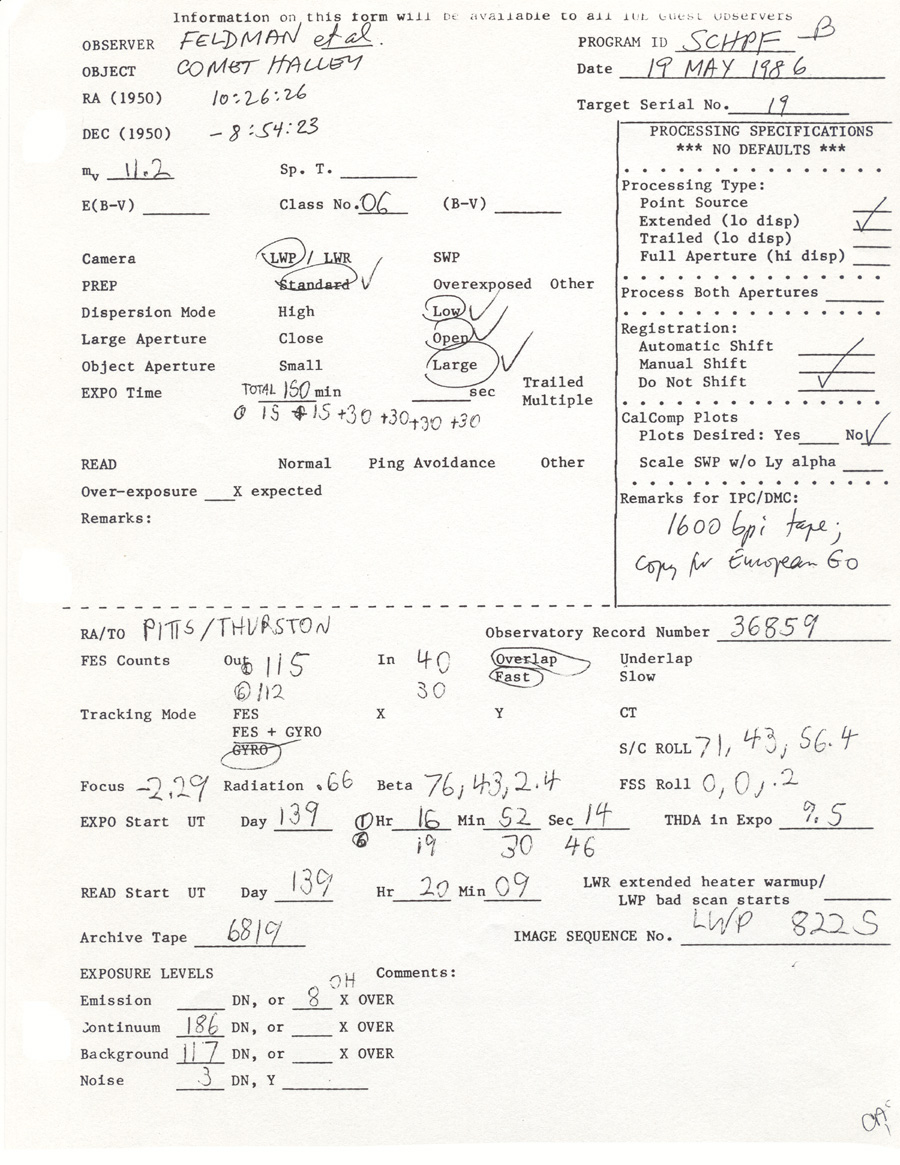 Information on this form will be available to all IUE Guest Observers
OBSERVER FELDMAN et al. PROGRAM ID SCHPF B
OBJECT COMET HALLEY Date 19 MAY 1986
RA (1950) 10:26:26 Target Serial No. 19
DEC (1950) -8:54:23
PROCESSING SPECIFICATIONS
*** NO DEFAULTS ***
mv 11.2 Sp. T.
Processing Type:
Point Source
E(B-V) Class No. 06 (B-V)
Extended (lo disp) ✓
Trailed (lo disp)
Full Aperture (hi disp)
Camera LWP / LWR SWP
PREP Standard ✓ Overexposed Other
Process Both Apertures
Dispersion Mode High Low ✓
Registration:
Large Aperture Close Open ✓
Automatic Shift
Object Aperture Small Large ✓
Manual Shift
Do Not Shift ✓
EXPO Time TOTAL 150 min sec Trailed
Multiple
15 + 15 +30 +30 +30 +30
CalComp Plots
Plots Desired: Yes No ✓
READ Normal Ping Avoidance Other
Scale SWP w/o Ly alpha
Over-exposure X expected
Remarks for IPC/DMC:
Remarks:
1600 bpi tape;
copy for European GO
RA/TO PITTS/THURSTON Observatory Record Number 36859
FES Counts Out 115 In 40 Overlap Underlap
⑥ 112 30 Fast Slow
Tracking Mode FES X Y CT
FES + GYRO
GYRO S/C ROLL 71, 43, 56.4
Focus -2.29 Radiation .66 Beta 76, 43, 2.4 FSS Roll 0, 0, .2
EXPO Start UT Day 139 ① Hr 16 Min 52 Sec 14 THDA in Expo 9.5
⑥ 19 30 46
READ Start UT Day 139 Hr 20 Min 09 LWR extended heater warmup/
LWP bad scan starts
Archive Tape 6819 IMAGE SEQUENCE No. LWP 8225
EXPOSURE LEVELS Comments:
OH
Emission DN, or 8 X OVER
Continuum 186 DN, or X OVER
Background 117 DN, or X OVER
Noise 3 DN, Y